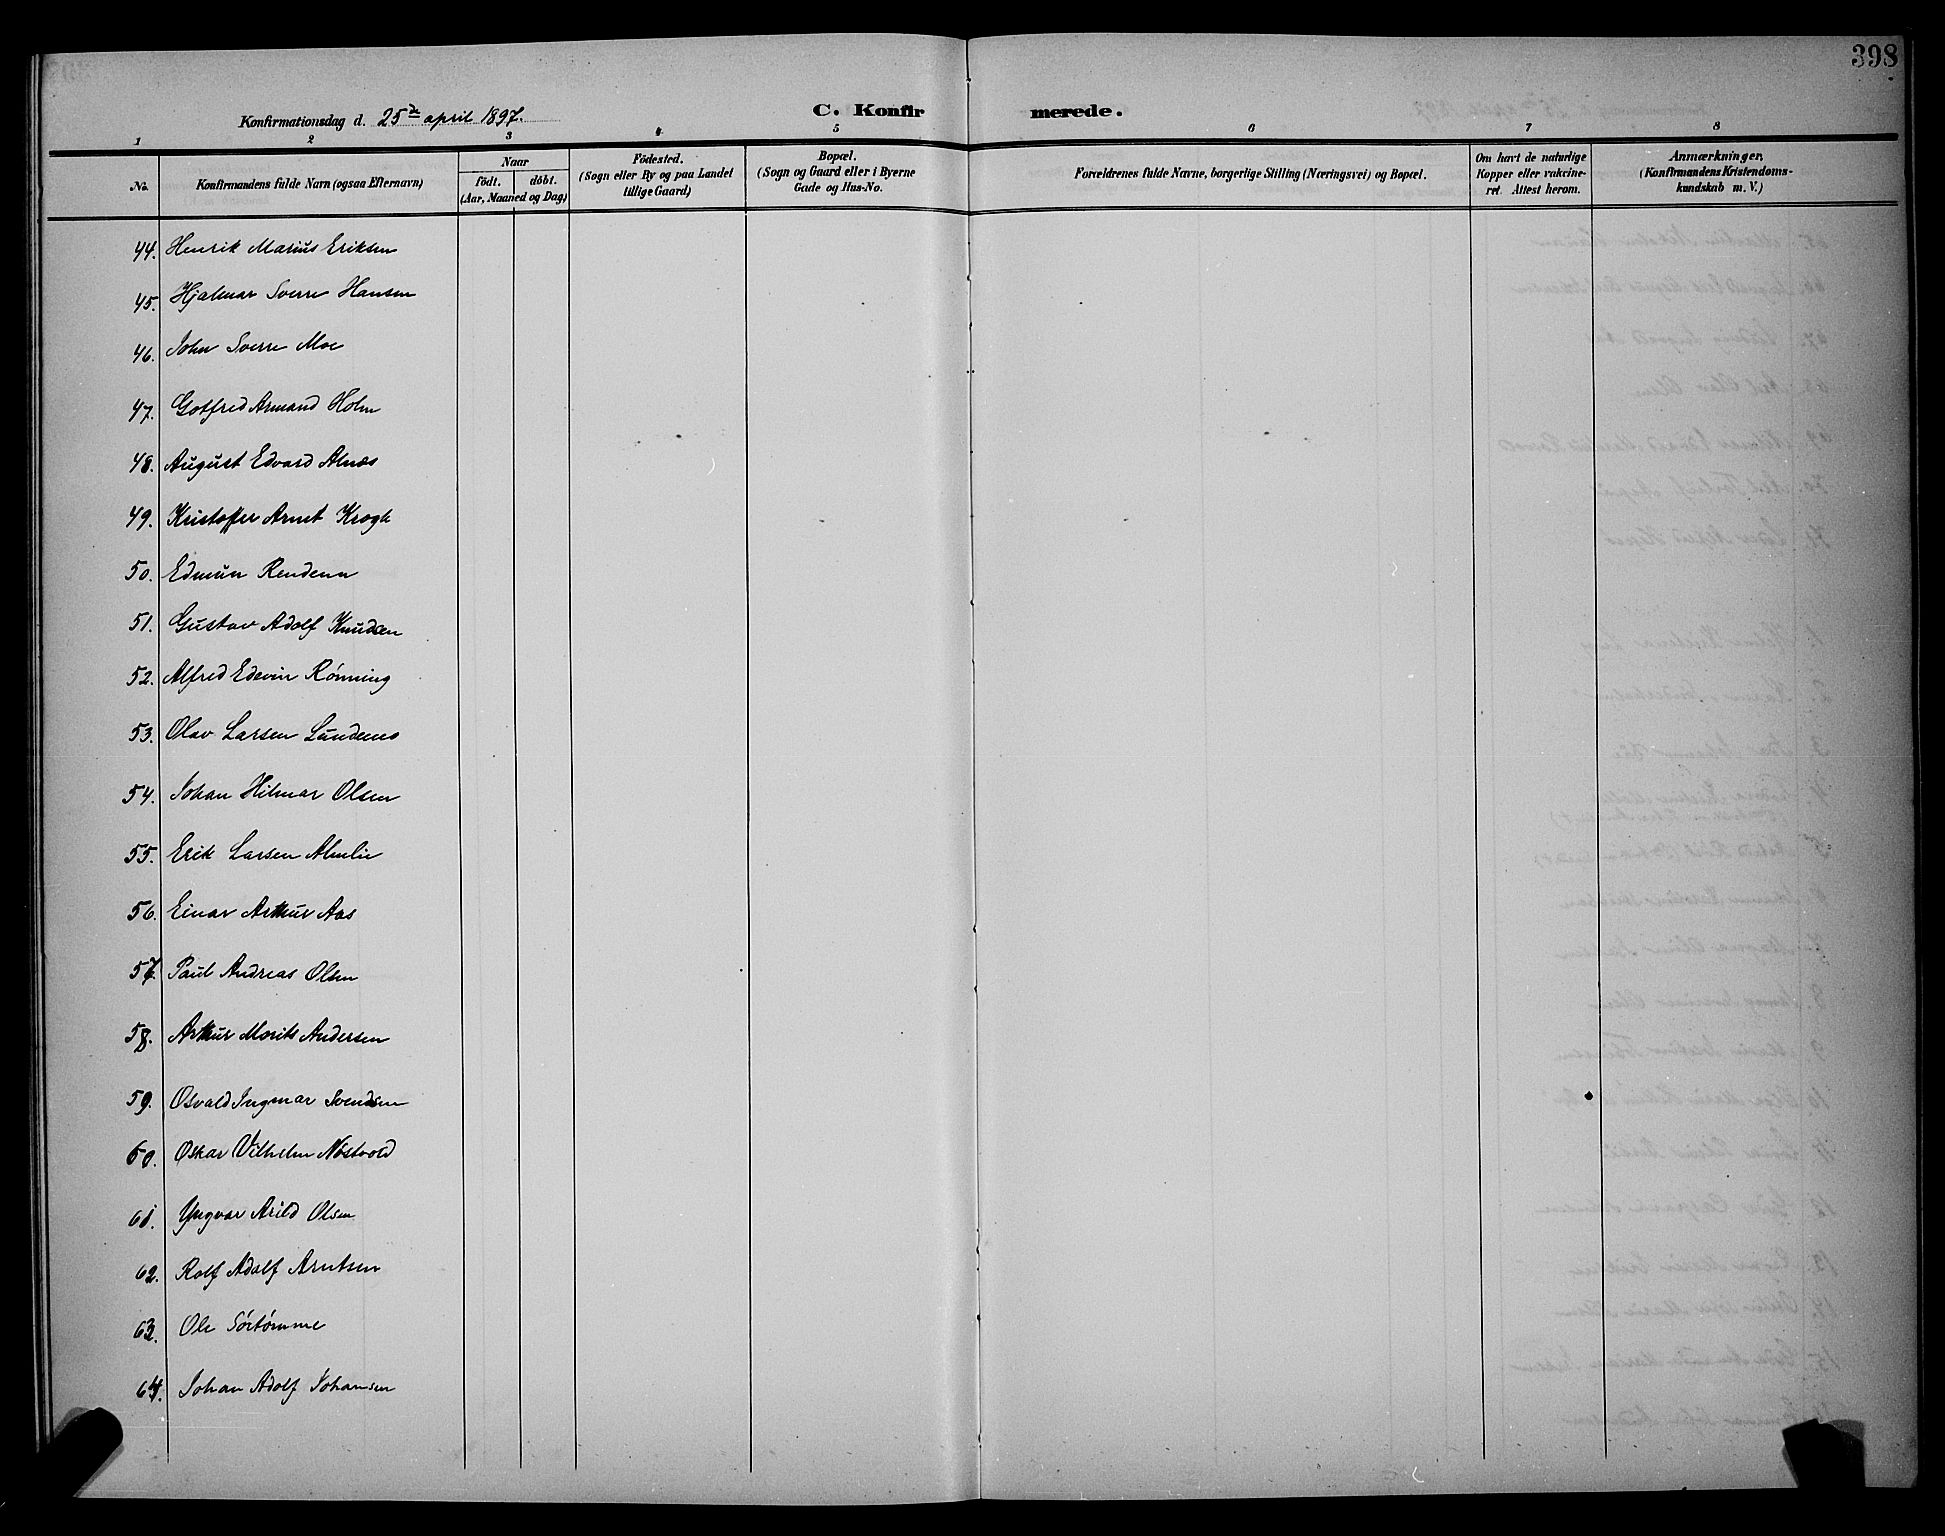 398
Konfirmationsdag d. 25de april 1897.
C. Konfirmerede.
1 2 3 4 5 6 7 8
No.
Konfirmandens fulde Navn (ogsaa Efternavn)
Naar
født. døbt.
(Aar, Maaned og Dag)
Fødested.
(Sogn eller By og paa Landet
tillige Gaard)
Bopæl.
(Sogn og Gaard eller i Byerne
Gade og Hus-No.
Forældrenes fulde Navne, borgerlige Stilling (Næringsvei) og Bopæl.
Om havt de naturlige
Kopper eller vakcine-
ret. Attest herom.
Anmærkninger,
(Konfirmandens Kristendoms-
kundskab m. V.)
44. Henrik Marius Eriksen
45. Hjalmar Sverre Hansen
46. John Sverre Moe
47. Gotfred Armand Holm
48. August Edvard Alnæs
49. Kristoffer Arnt Krogh
50. Edmun Rendenn
51. Gustav Adolf Knudsen
52. Alfred Edevin Rønning
53. Olav Larsen Lundemo
54. Johan Hilmar Olsen
55. Erik Larsen Almlie
56. Einar Arthur Aas
57. Paul Andreas Olsen
58. Arthur Morits Andersen
59. Osvald Ingmar Svendsen
60. Oskar Vilhelm Nøstvold
61. Yngvar Arild Olsen
62. Rolf Adolf Arntsen
63. Ole Sørtømme
64. Johan Adolf Johansen